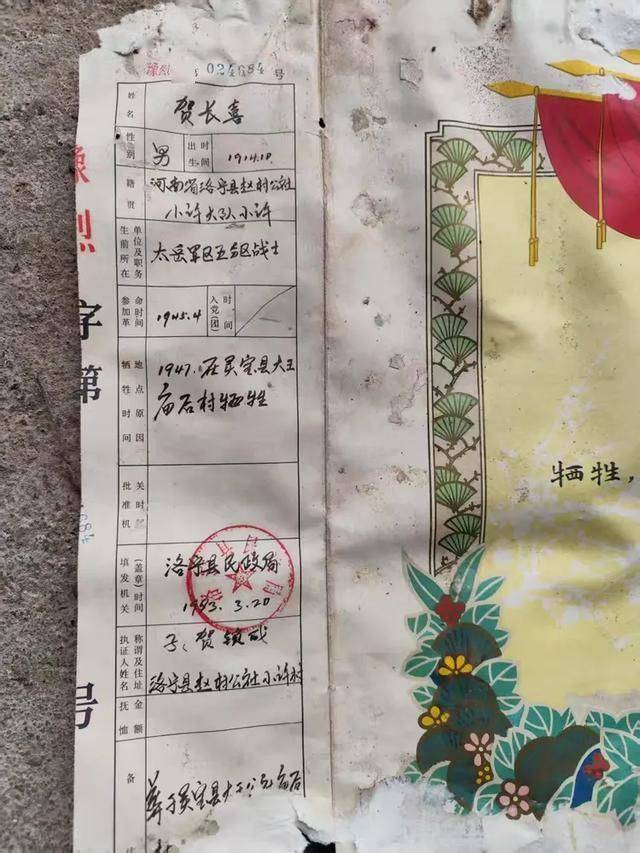 豫烈 024684号
姓名 贺长喜
性别 男 出生时间 1914.10.
籍贯 河南省洛宁县赵村公社
小许大队小许
生前所在单位及职务 太岳军区五分区战士
参加革命时间 1945.4 入党(团)时间
牺牲时间地点原因 1947.在灵宝县大王
庙后村牺牲
批准机关时
填发机关(盖章)时间 洛宁县民政局
1983.3.20
执证人姓名称谓及住址 子:贺锁成
洛宁县赵村公社小许村
抚恤金额
备 葬于灵宝县大王公社庙后
豫烈字第
号
牺牲,